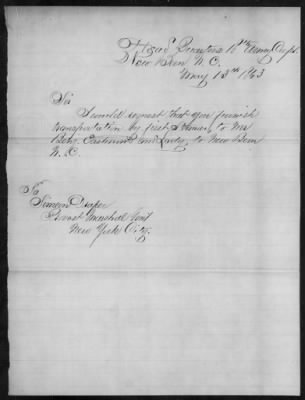 Head Quarters 18th Army Corps
New Bern N.C.
May 13th 1863
Sir
I would request that you furnish
transportation by first Steamer, to Mr
Benj. Eastmond and Lady, to New Bern
N.C.
To
Simeon Draper
Provost Marshal Genl
New York City.